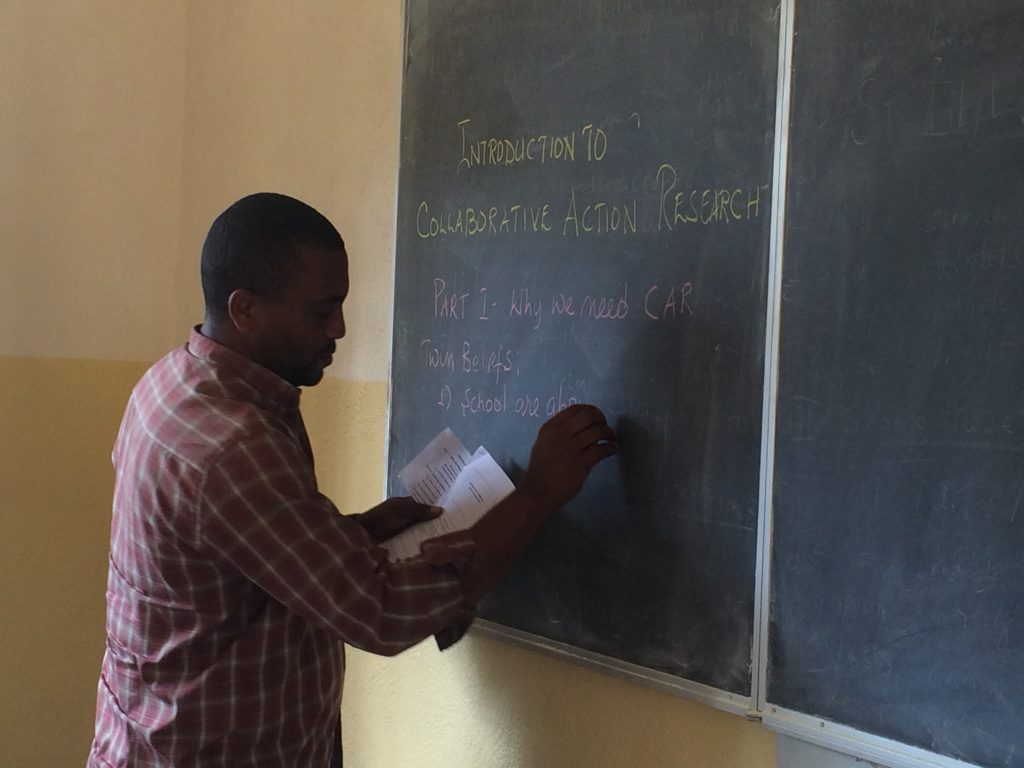 INTRODUCTION TO
COLLABORATIVE ACTION RESEARCH
PART I - Why we need CAR
Twin Beliefs,
1) School are abo